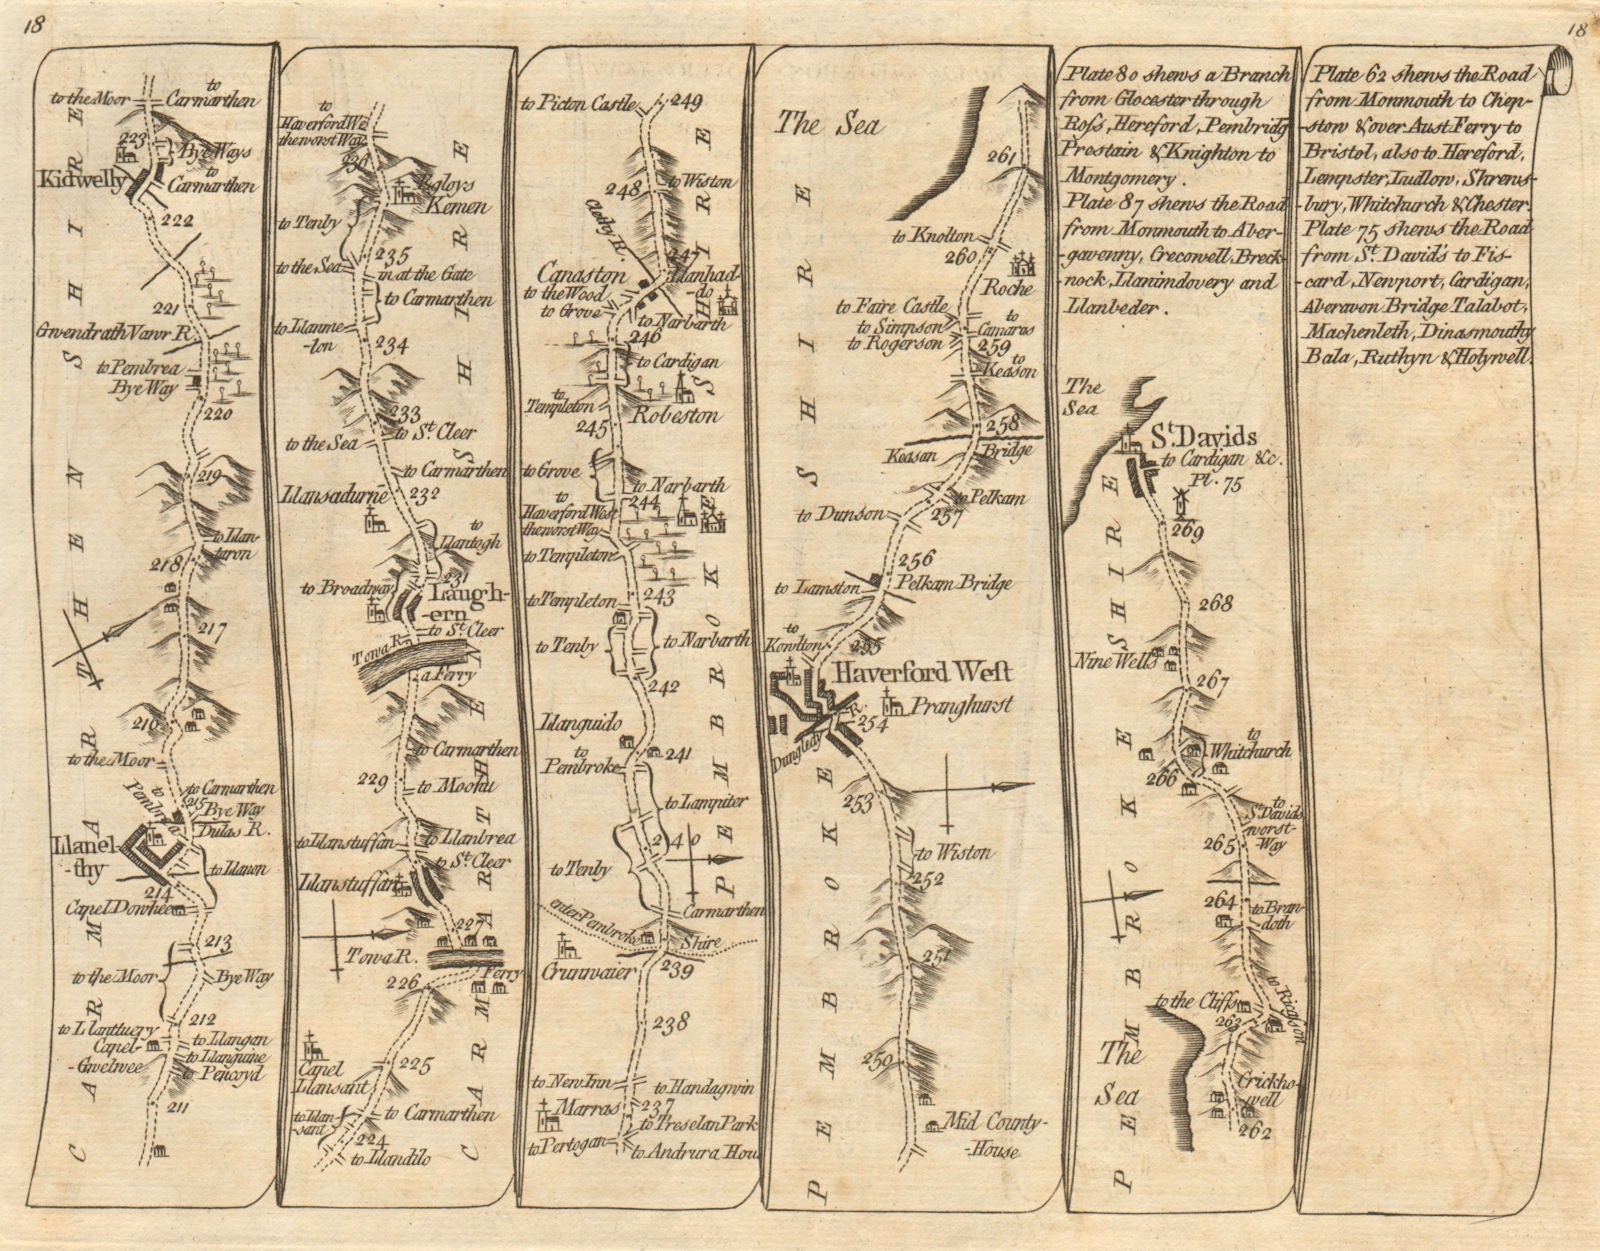 18
18
to the Moor
to
Carmarthen
223
Bye Ways
Kidwelly
to
Carmarthen
222
221
Gwendrath Vawr R.
to Pembrea
Bye Way
220
219
to Llan-
-turon
218
217
216
to the Moor
to Pembrea
to Carmarthen
215
Bye Way
Dulas R.
Llanel-
-thy
to Llanon
214
Capel Dowhee
213
to the Moor
Bye Way
212
to Llanttuery
Capel-
-Gwelnee
to Llangan
to Llanguine
to Pencoyd
211
CARMARTHENSHIRE
to
Haverford We
the worst Way
236
Egloys
Kemen
to Tenby
235
to the Sea
in at the Gate
to Carmarthen
to Llanme-
-lon
234
233
to the Sea
to St. Cleer
to Carmarthen
232
Llansadurne
to
Llantogh
231
to Broadway
Laugh-
-ern
to St. Cleer
Towa R.
a Ferry
to Carmarthen
229
to Moohu
to Llanstuffan
to Llanbrea
to St. Cleer
Llanstuffan
227
Towa R.
Ferry
226
Capel
Llansant
225
to Llan-
-sant
to Carmarthen
224
to Llandilo
CARMARTHENSHIRE
to Picton Castle
249
248
to Wiston
Clethy R.
247
Canaston
Llanhad-
-do
to the Wood
to Grove
to Narbarth
246
to Cardigan
to
Templeton
Robeston
245
to Grove
to Narbarth
to
Haverford West
the worst Way
244
to Templeton
243
to Templeton
to Tenby
to Narbarth
242
Llanguido
to
Pembroke
241
to Lampiter
240
to Tenby
Carmarthen
enter Pembroke
Shire
Crunwaier
239
238
to New Inn
to Handagwin
Marras
237
to Treselan Park
to Pertogan
to Andrura Hou
PEMBROKESHIRE
The Sea
261
to Knolton
260
Roche
to Faire Castle
to Simpson
to Rogerson
to
Camaras
259
to
Keason
258
Keason
Bridge
to Pelkam
257
to Dunson
256
to Lamston
Pelkam Bridge
to
Knolton
255
Haverford West
R.
254
Pranghurst
Dungledy
253
to Wiston
252
251
250
Mid County-
-House
PEMBROKESHIRE
Plate 80 shews a Branch
from Glocester through
Ross, Hereford, Pembridg
Prestain & Knighton to
Montgomery.
Plate 87 shews the Road
from Monmouth to Aber-
-gavenny, Crecowell, Breck
-nock, Llanimdovery and
Llanbeder.
The
Sea
St. Davids
to Cardigan &c.
Pl. 75
269
268
Nine Wells
267
to
Whitchurch
266
to
St. Davids
worst-
-Way
265
264
to Bran-
-doth
to the Cliffs
to Rickson
263
The
Sea
Crickho-
-well
262
PEMBROKESHIRE
Plate 62 shews the Road
from Monmouth to Chep-
-stow & over Aust Ferry to
Bristol, also to Hereford,
Lempster, Ludlow, Shrews-
-bury, Whitchurch & Chester.
Plate 75 shews the Road
from St. David's to Fis-
-card, Newport, Cardigan,
Aberavon Bridge Talabot,
Machenleth, Dinasmouthy
Bala, Ruthyn & Holywell.